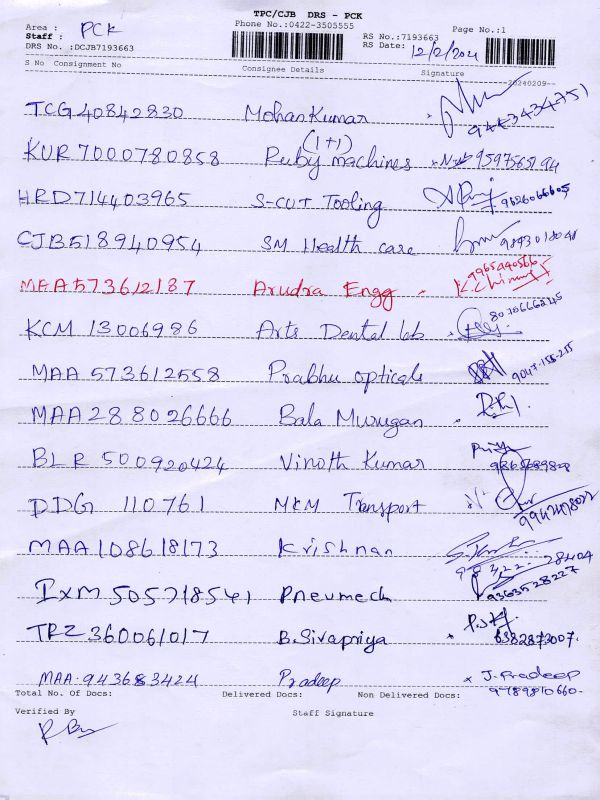 TPC/CJB DRS - PCK
Area : PCK Phone No.:0422-3505555 RS No.:7193663 Page No.:1
Staff : RS Date: 12/2/2021
DRS No. :DCJB7193663
S No Consignment No Consignee Details Signature
20240209--
TCG 40842830 Mohan Kumar
(1+1)
KUR 7000780858 Ruby machines 9597565294
HRD714403965 S-CUT Tooling 9626066605
CJB518940954 SM Health care
MAA573612187 Arudra Engg
KCM 13006986 Arts Dental lab
MAA 573612558 Prabhu opticals 9047-155-215
MAA 288026666 Bala Murugan
BLR 500920424 Vinoth Kumar Priya
DDG 110761 MKM Transport
MAA108618173 Krishnan
IXM 505718541 Pneumech 9363528227
TRZ 360061017 B.Sivapriya 6382873007.
MAA-943683424 Pradeep J. Pradeep
9789810660-
Total No. Of Docs: Delivered Docs: Non Delivered Docs:
Verified By Staff Signature